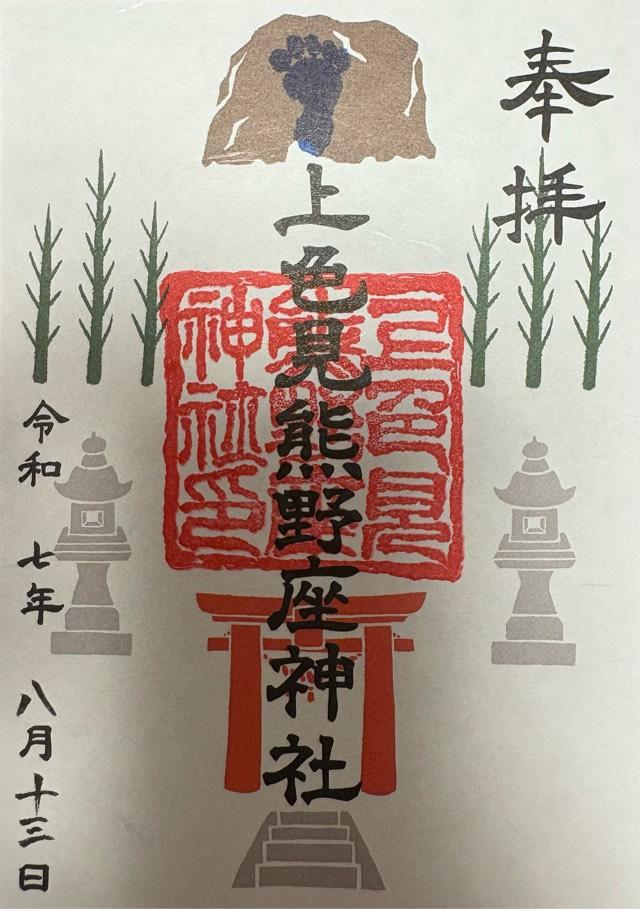 奉拝
上色見熊野座神社
上色見
熊野座
神社印
令和 七年 八月十三日